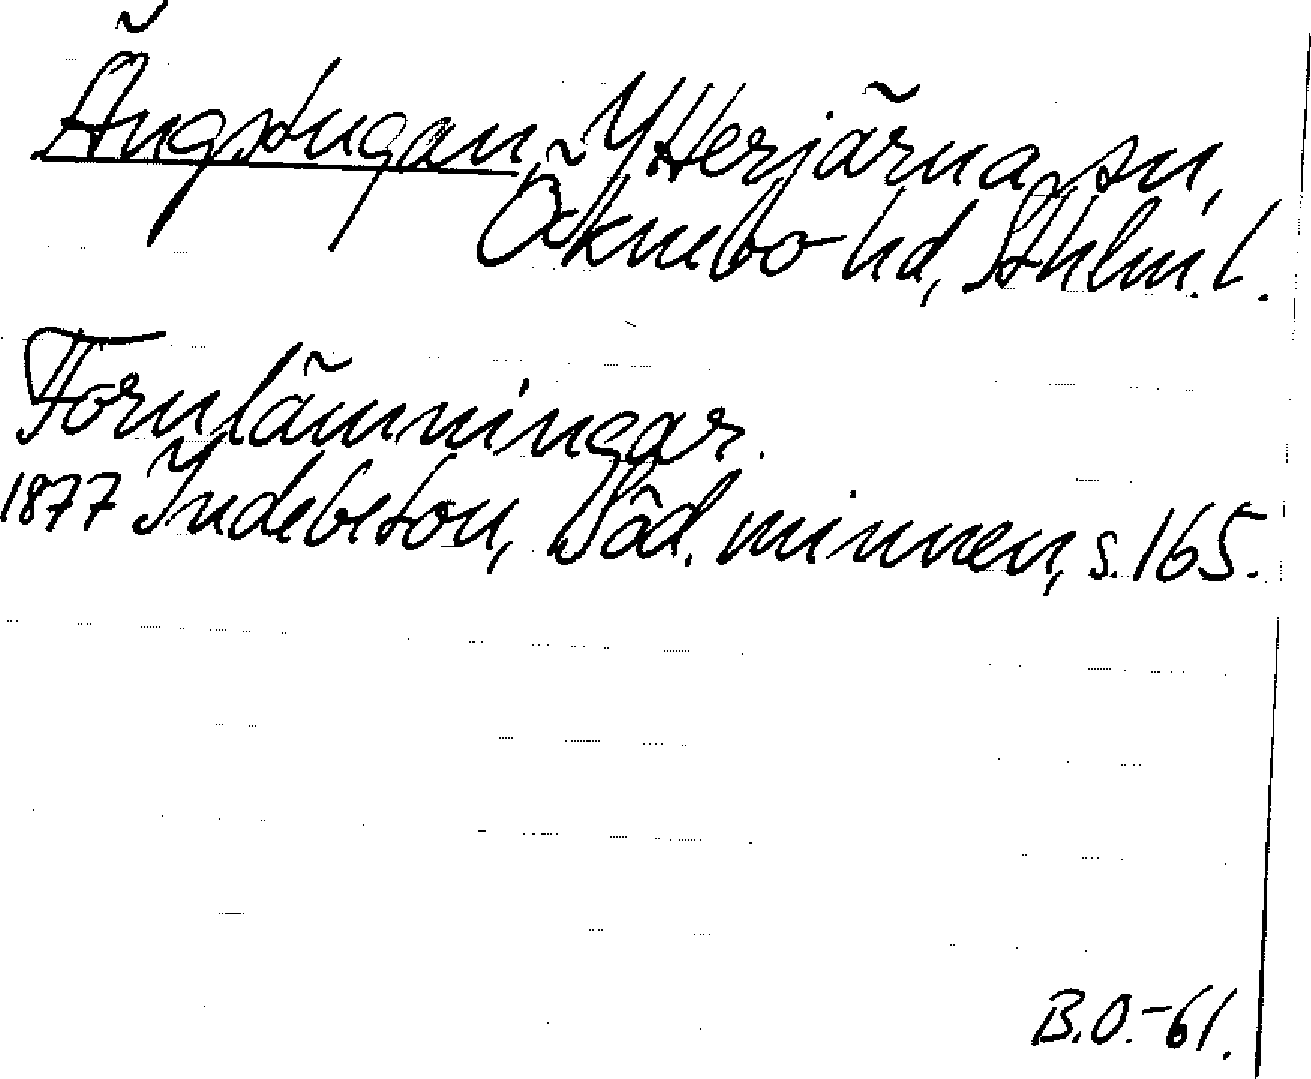 Ängstugan, Ytterjärna sn,
Öknebo hd, Sthlm. l.
Fornlämningar.
1877 Indebetou, Söd. minnen, s. 165.
B.O.-61.